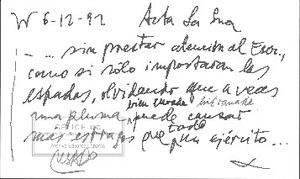 W 6-12-92 Acta La Lna
- ... sin prestar atención al Exer.,
como si sólo importaran las
espadas, olvidando que a veces
bien cursada
una pluma, puede causar
más estragos que todo un ejército...